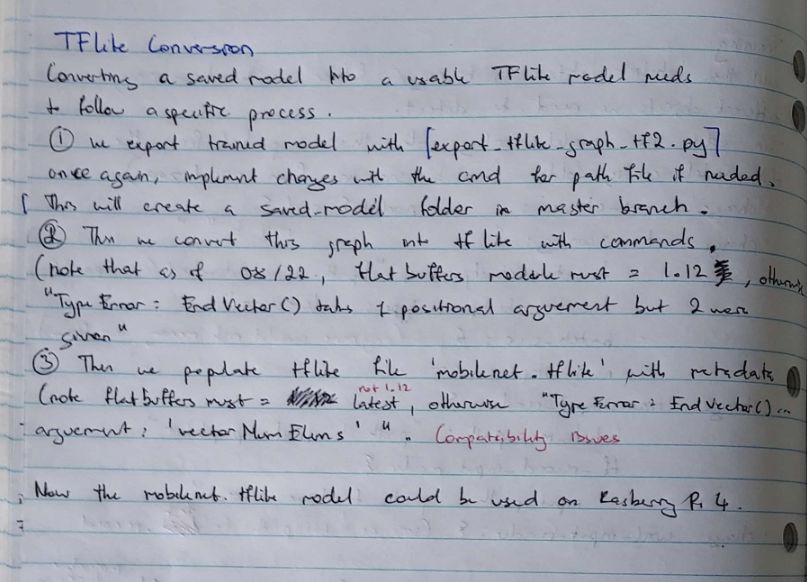 TFlite Conversion
Converting a saved model into a usable TFlite model needs
to follow a specific process.
① we export trained model with [export_tflite_graph_tf2.py]
once again, implement changes with the cmd for path file if needed.
This will create a saved_model folder in master branch.
② Then we convert this graph into tflite with commands.
(note that as of 08/22, flatbuffers module must = 1.12, otherwise
"Type Error: EndVector() takes 1 positional arguement but 2 were
given"
③ Then we populate tflite file 'mobilenet.tflite' with metadata
not 1.12
(note flatbuffers must = latest, otherwise "Type Error: EndVector()
arguement: 'vectorNumElems'". Compatibility issues
Now the mobilenet.tflite model could be used on Rasberry Pi 4.